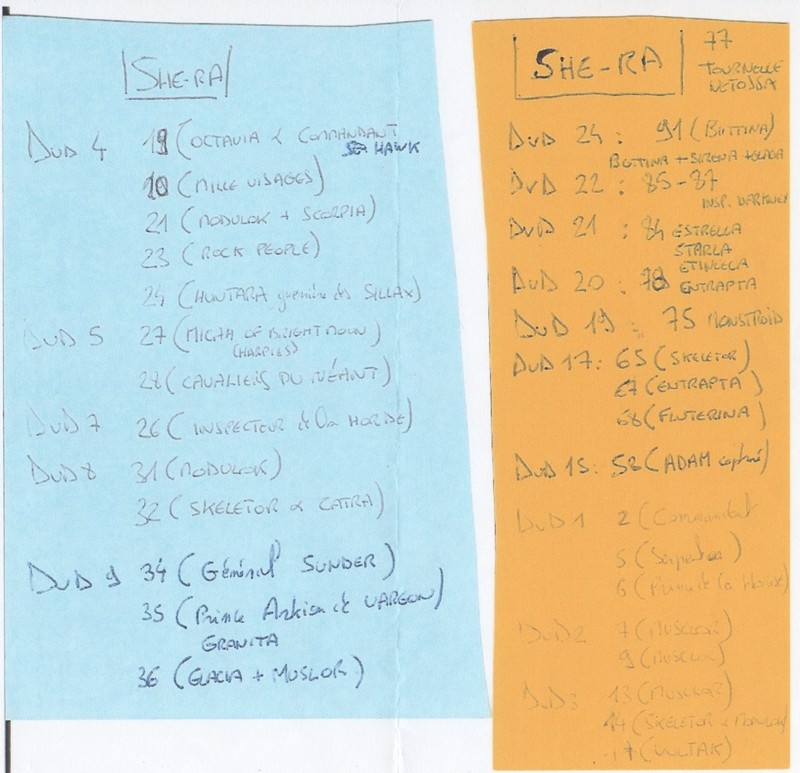 SHE-RA
DVD 4 19 (OCTAVIA & COMMANDANT
SEA HAWK
20 (MILLE VISAGES)
21 (MODULOK + SCORPIA)
23 (ROCK PEOPLE)
24 (HUNTARA guerrière des SILLAX)
DVD 5 27 (MICAH OF BRIGHTMOON)
(HARPIES)
28 (CAVALIERS DU NÉANT)
DVD 7 26 (INSPECTEUR de la HORDE)
DVD 8 31 (MODULOK)
32 (SKELETOR & CATRA)
DVD 9 34 (Général SUNDER)
35 (Prince de VARGON)
GRANITA
36 (GLACIA + MUSCLOR)
SHE-RA
77
TOURNELLE
NETOSSA
DVD 24 : 91 (BUTTINA)
BUTTINA + SIRENA +
DVD 22 : 85-87
INSP.
DVD 21 : 84 ESTRELLA
STARLA
ETINCELA
DVD 20 : 78 ENTRAPTA
DVD 19 : 75 MONSTROID
DVD 17 : 65 (SKELETOR)
67 (ENTRAPTA)
68 (FLUTERINA)
DVD 15 : 58 (ADAM capturé)
DVD 1 2 (Commandant
5
6 (de la Horde)
DVD 2 7 (MUSCLOR)
9 (MUSCLOR)
DVD 3 13 (MUSCLOR)
14 (SKELETOR & MODULOK)
17 (VULTAK)